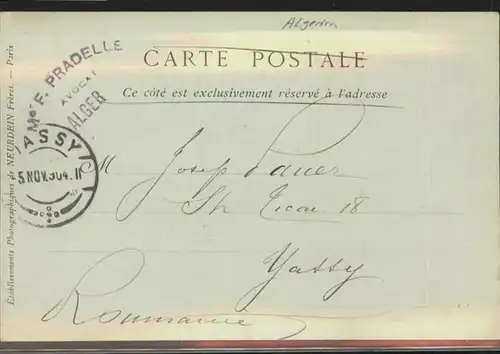 Algerien
CARTE POSTALE
Ce côté est exclusivement réservé à l'adresse
Me F. PRADELLE
AVOCAT
ALGER
ASSY
5 NOV. 904. 11
M Josep Pauer
Str 18
Yassy
Roumanie
Établissements Photographiques de NEURDEIN Frères. — Paris